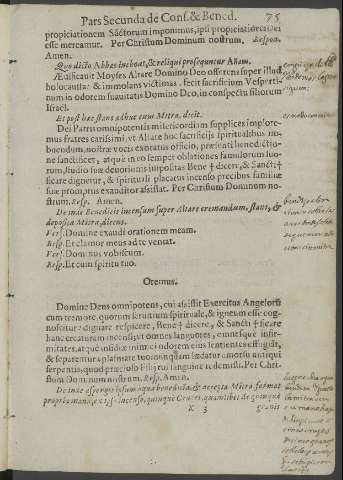 Pars Secunda de Conf. & Bened. 75
propiciationem Sãctorum imponimus, ipsi propiciationis dei
esse mereamur. Per Christum Dominum nostrum. Respon.
Amen.
Quo dicto Abbas inchoat, & reliqui prosequuntur Añam.
Ædificauit Moyses Altare Domino Deo offerens super illud
holocausta: & immolans victimas. fecit sacrificium Vesperti-
num in odorem suauitatis Domino Deo, in conspectu filiorum
Israel.
Et post hæc stans adhuc cum Mitra, dicit.
Dei Patris omnipotentis misericordiam supplices implore-
mus fratres carissimi, vt Altare hoc sacrificijs spiritalibus im-
buendum, nostræ vocis exoratus officio, præsenti benedictio-
ne sanctificet, atque in eo semper oblationes famulorum suo-
rum, studio suæ deuotionis impositas Bene † dicere, & Sancti †
ficare dignetur, & spirituali placatus incenso precibus familiæ
suæ promptus exauditor assistat. Per Christum Dominum no-
strum. Resp. Amen.
De inde Benedicit incensum super Altare cremandum, stans, &
deposita Mitra, dicens.
Ver. Domine exaudi orationem meam.
Resp. Et clamor meus ad te veniat.
Ver. Dominus vobiscum.
Resp. Et cum spiritu tuo.
Oremus.
Domine Deus omnipotens, cui assistit Exercitus Angelorũ
cum tremore, quorum seruitium spirituale, & igneum esse cog-
noscitur: dignare respicere, Bene † dicere, & Sancti † ficare
hanc creaturam incensi, vt omnes languores, omnesque infir-
mitates, atque insidiæ inimici odorem eius sentientes effugiãt,
& separentur a plasmate tuo: vt nunquam lædatur a morsu antiqui
serpentis, quod præcioso Filij tui sanguine redemisti. Per Chri-
stum Dominum nostrum. Resp. Amen.
De inde aspergit ipsum aqua benedicta, & accepta Mitra, format
propria manu, ex ipso incenso, quinque Cruces, quamlibet de quinque
K 3 granis